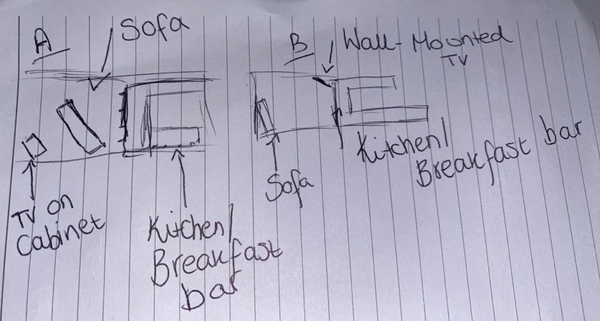 A
Sofa
TV on
Cabinet
Kitchen/
Breakfast
bar
B
Wall-Mounted
TV
Sofa
Kitchen/
Breakfast bar